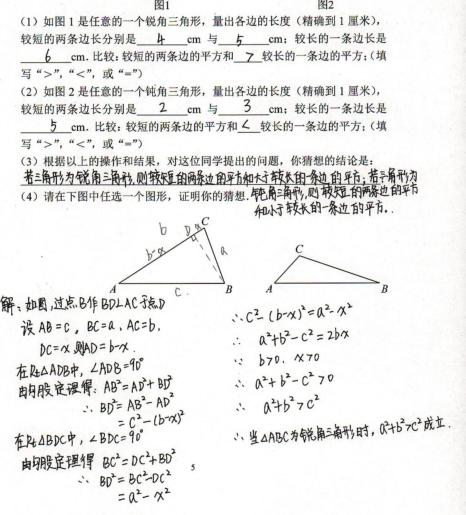 图1 图2
（1）如图1是任意的一个锐角三角形，量出各边的长度（精确到1厘米），
较短的两条边长分别是 4 cm 与 5 cm；较长的一条边长是
6 cm．比较：较短的两条边的平方和 > 较长的一条边的平方；（填
写“>”，“<”，或“=”）
（2）如图2是任意的一个钝角三角形，量出各边的长度（精确到1厘米），
较短的两条边长分别是 2 cm 与 3 cm；较长的一条边长是
5 cm．比较：较短的两条边的平方和 < 较长的一条边的平方；（填
写“>”，“<”，或“=”）
（3）根据以上的操作和结果，对这位同学提出的问题，你猜想的结论是：
若三角形为锐角三角形,则较短的两条边的平方和大于较长的一条边的平方；若三角形为
钝角三角形,则较短的两条边的平方
和小于较长的一条边的平方．
（4）请在下图中任选一个图形，证明你的猜想．
b
D x C
b-x a
A c B
C
A B
解：如图,过点B作BD⊥AC于点D
设AB=c，BC=a，AC=b，
DC=x,则AD=b-x．
在Rt△ADB中，∠ADB=90°
由勾股定理得：AB²=AD²+BD²
∴ BD²=AB²-AD²
=c²-(b-x)²
在Rt△BDC中，∠BDC=90°
由勾股定理得 BC²=DC²+BD²
∴ BD²=BC²-DC²
=a²-x²
∴c²-(b-x)²=a²-x²
∴ a²+b²-c²=2bx
∵ b>0，x>0
∴ a²+b²-c²>0
∴ a²+b²>c²
∴当△ABC为锐角三角形时，a²+b²>c²成立．
5